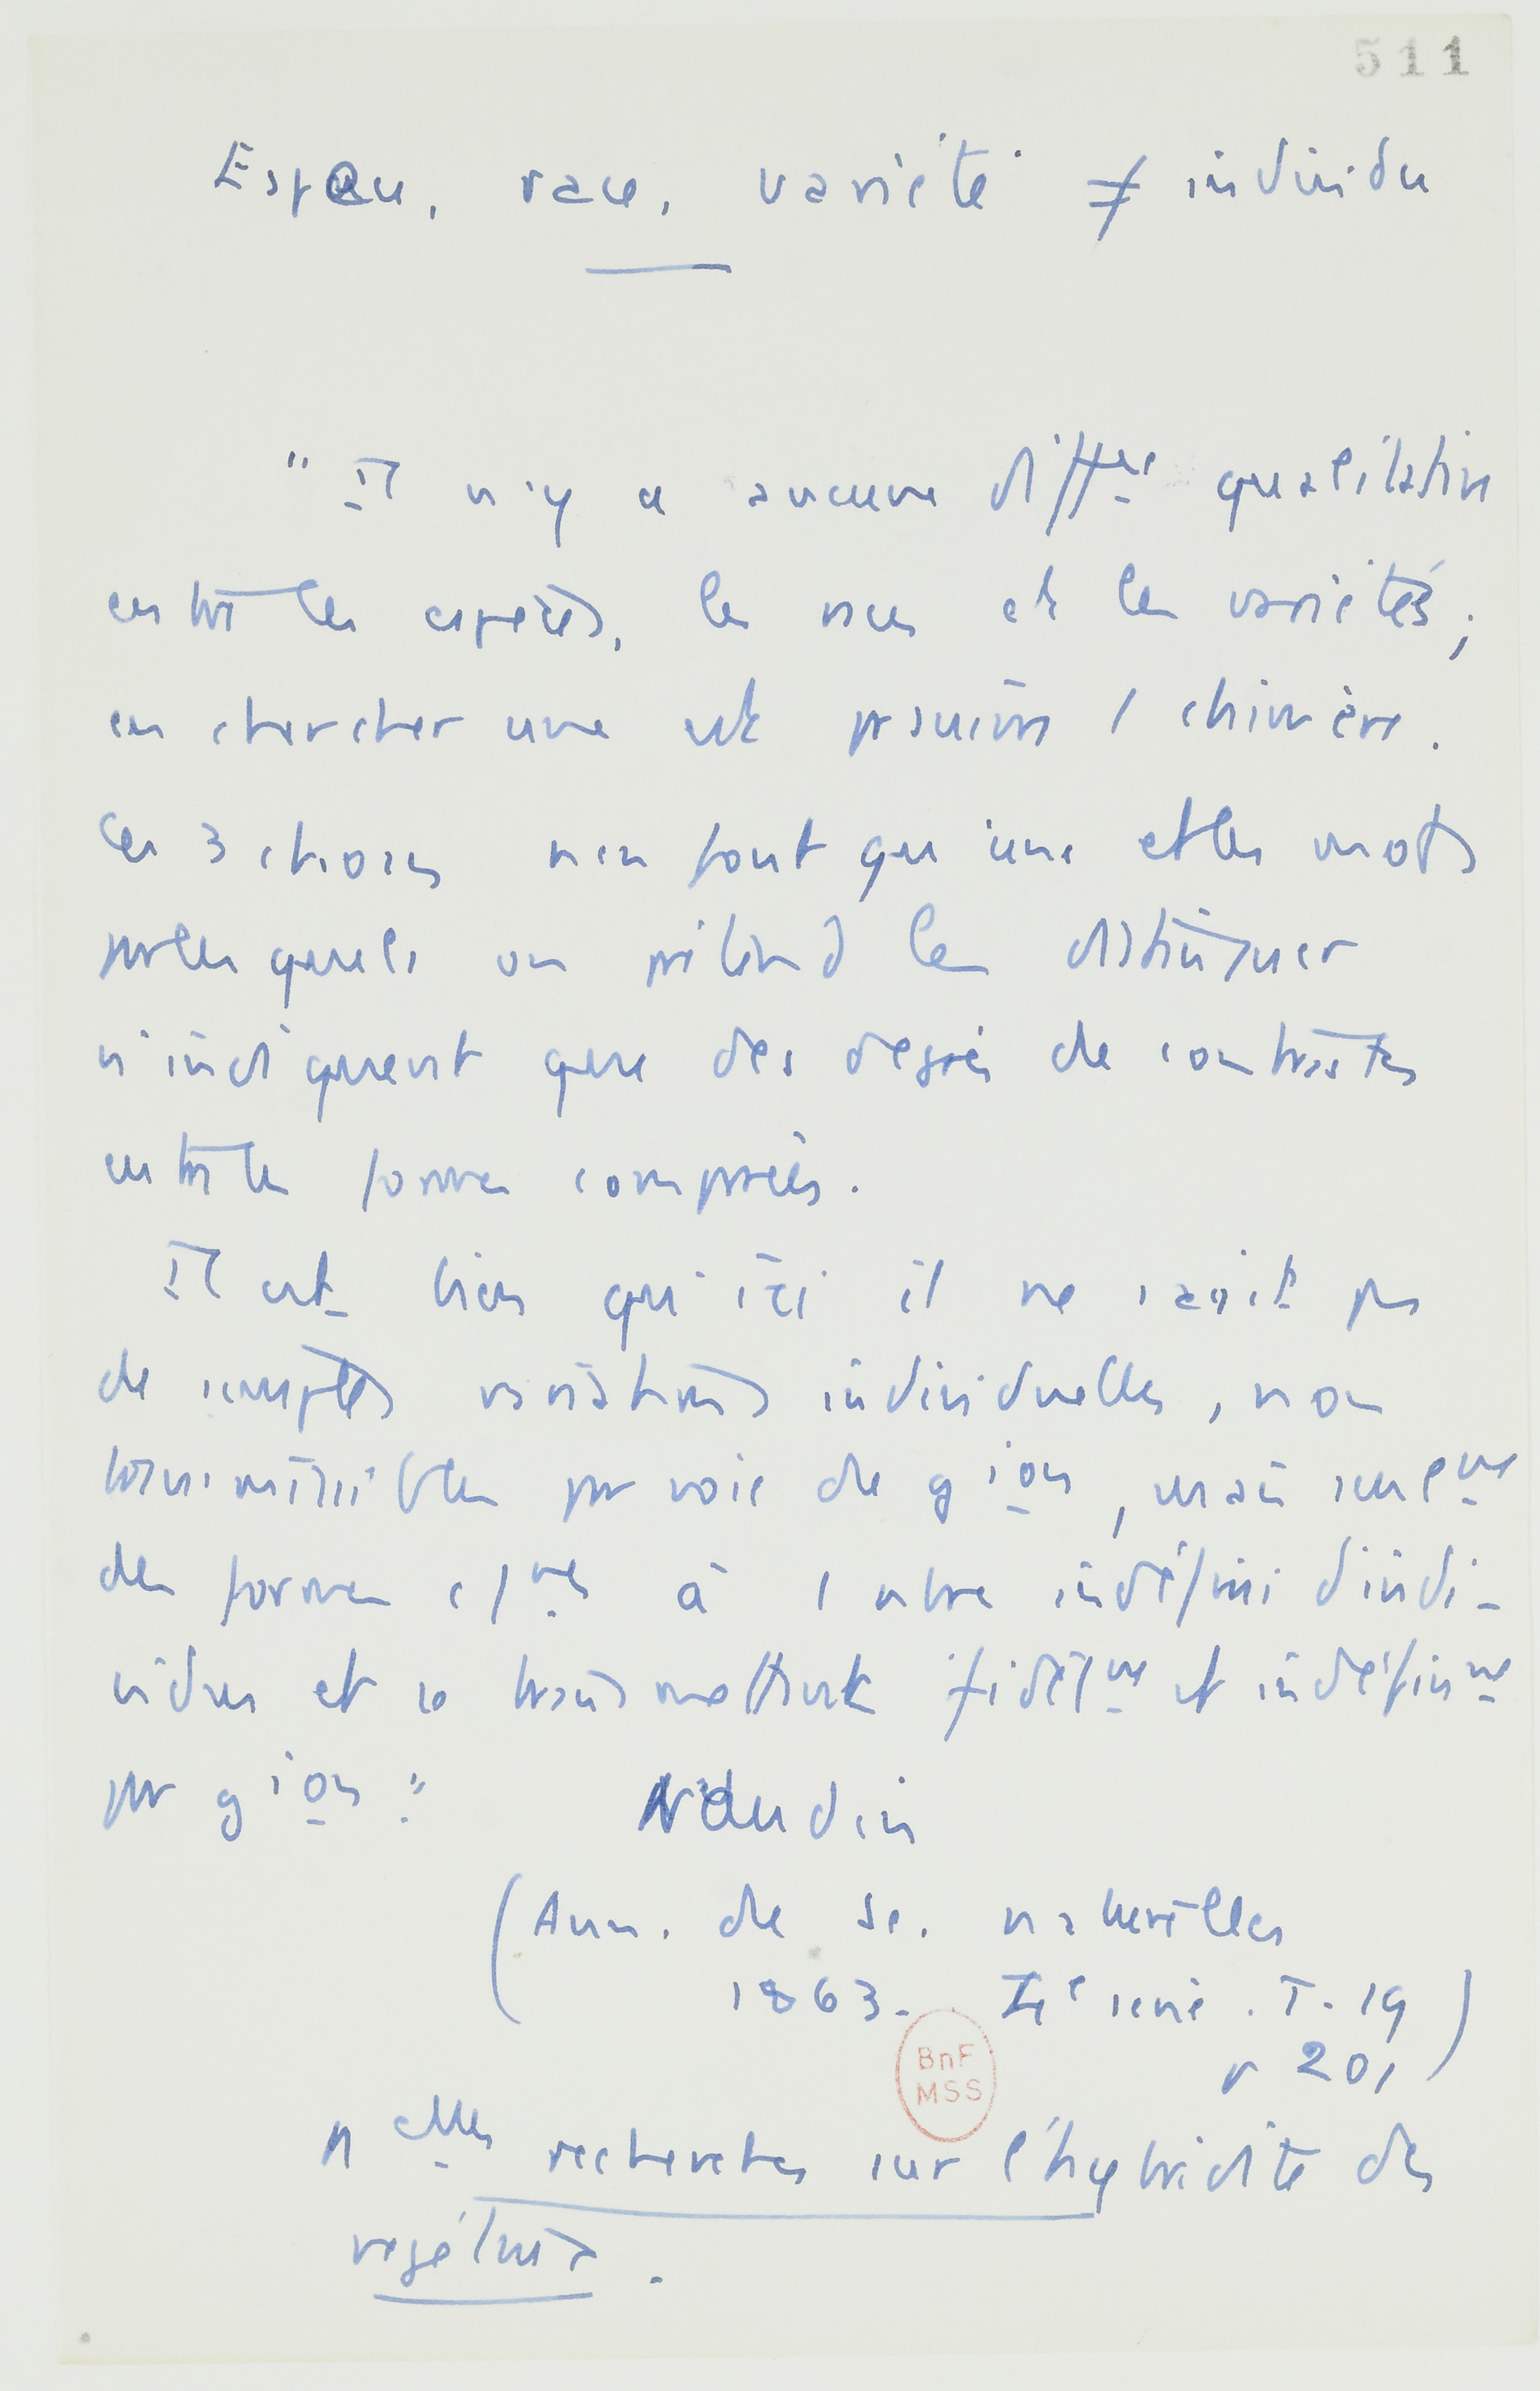 511
Espèce, race, variété ≠ individu
"Il n'y a aucune diffce qualitative
entre les espèces, les races et les variétés ;
en chercher une est poursuivre 1 chimère.
Ces 3 choses n'en font qu'une et les mots
par lesquels on prétend les distinguer
n'indiquent que des degrés de contrastes
entre les formes comparées.
Il est bien qu'ici il ne s'agit pas
de simples variations individuelles, non
transmissibles par voie de gion, mais seulemt
des formes cnes à 1 nbre indéfini d'indi-
vidus et se transmettant fidèlmt et indéfinmt
par gion." Naudin
(Ann. de Sc. naturelles
1863. 4e série. T. 19
p 201)
Nelles recherches sur l'hybridité des
végétaux.
BnF
MSS